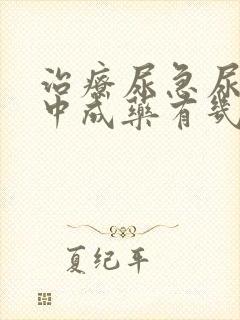 治療尿急尿
中成藥有幾
夏纪年